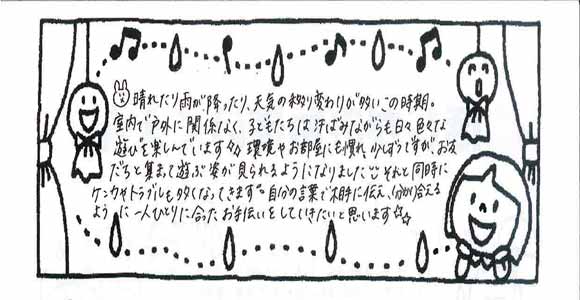 晴れたり雨が降ったり、天気の移り変わりが多いこの時期。
室内で戸外に関係なく、子どもたちは汗ばみながらも日々色々な
遊びを楽しんでいます♪♪ 環境やお部屋にも慣れ 少しずつですが お友
だちと集まって遊ぶ姿が見られるようになりました それと同時に
ケンカやトラブルも多くなってきます 自分の言葉で相手に伝え、分かり合える
ように一人ひとりに合ったお手伝いをしていきたいと思います☆☆